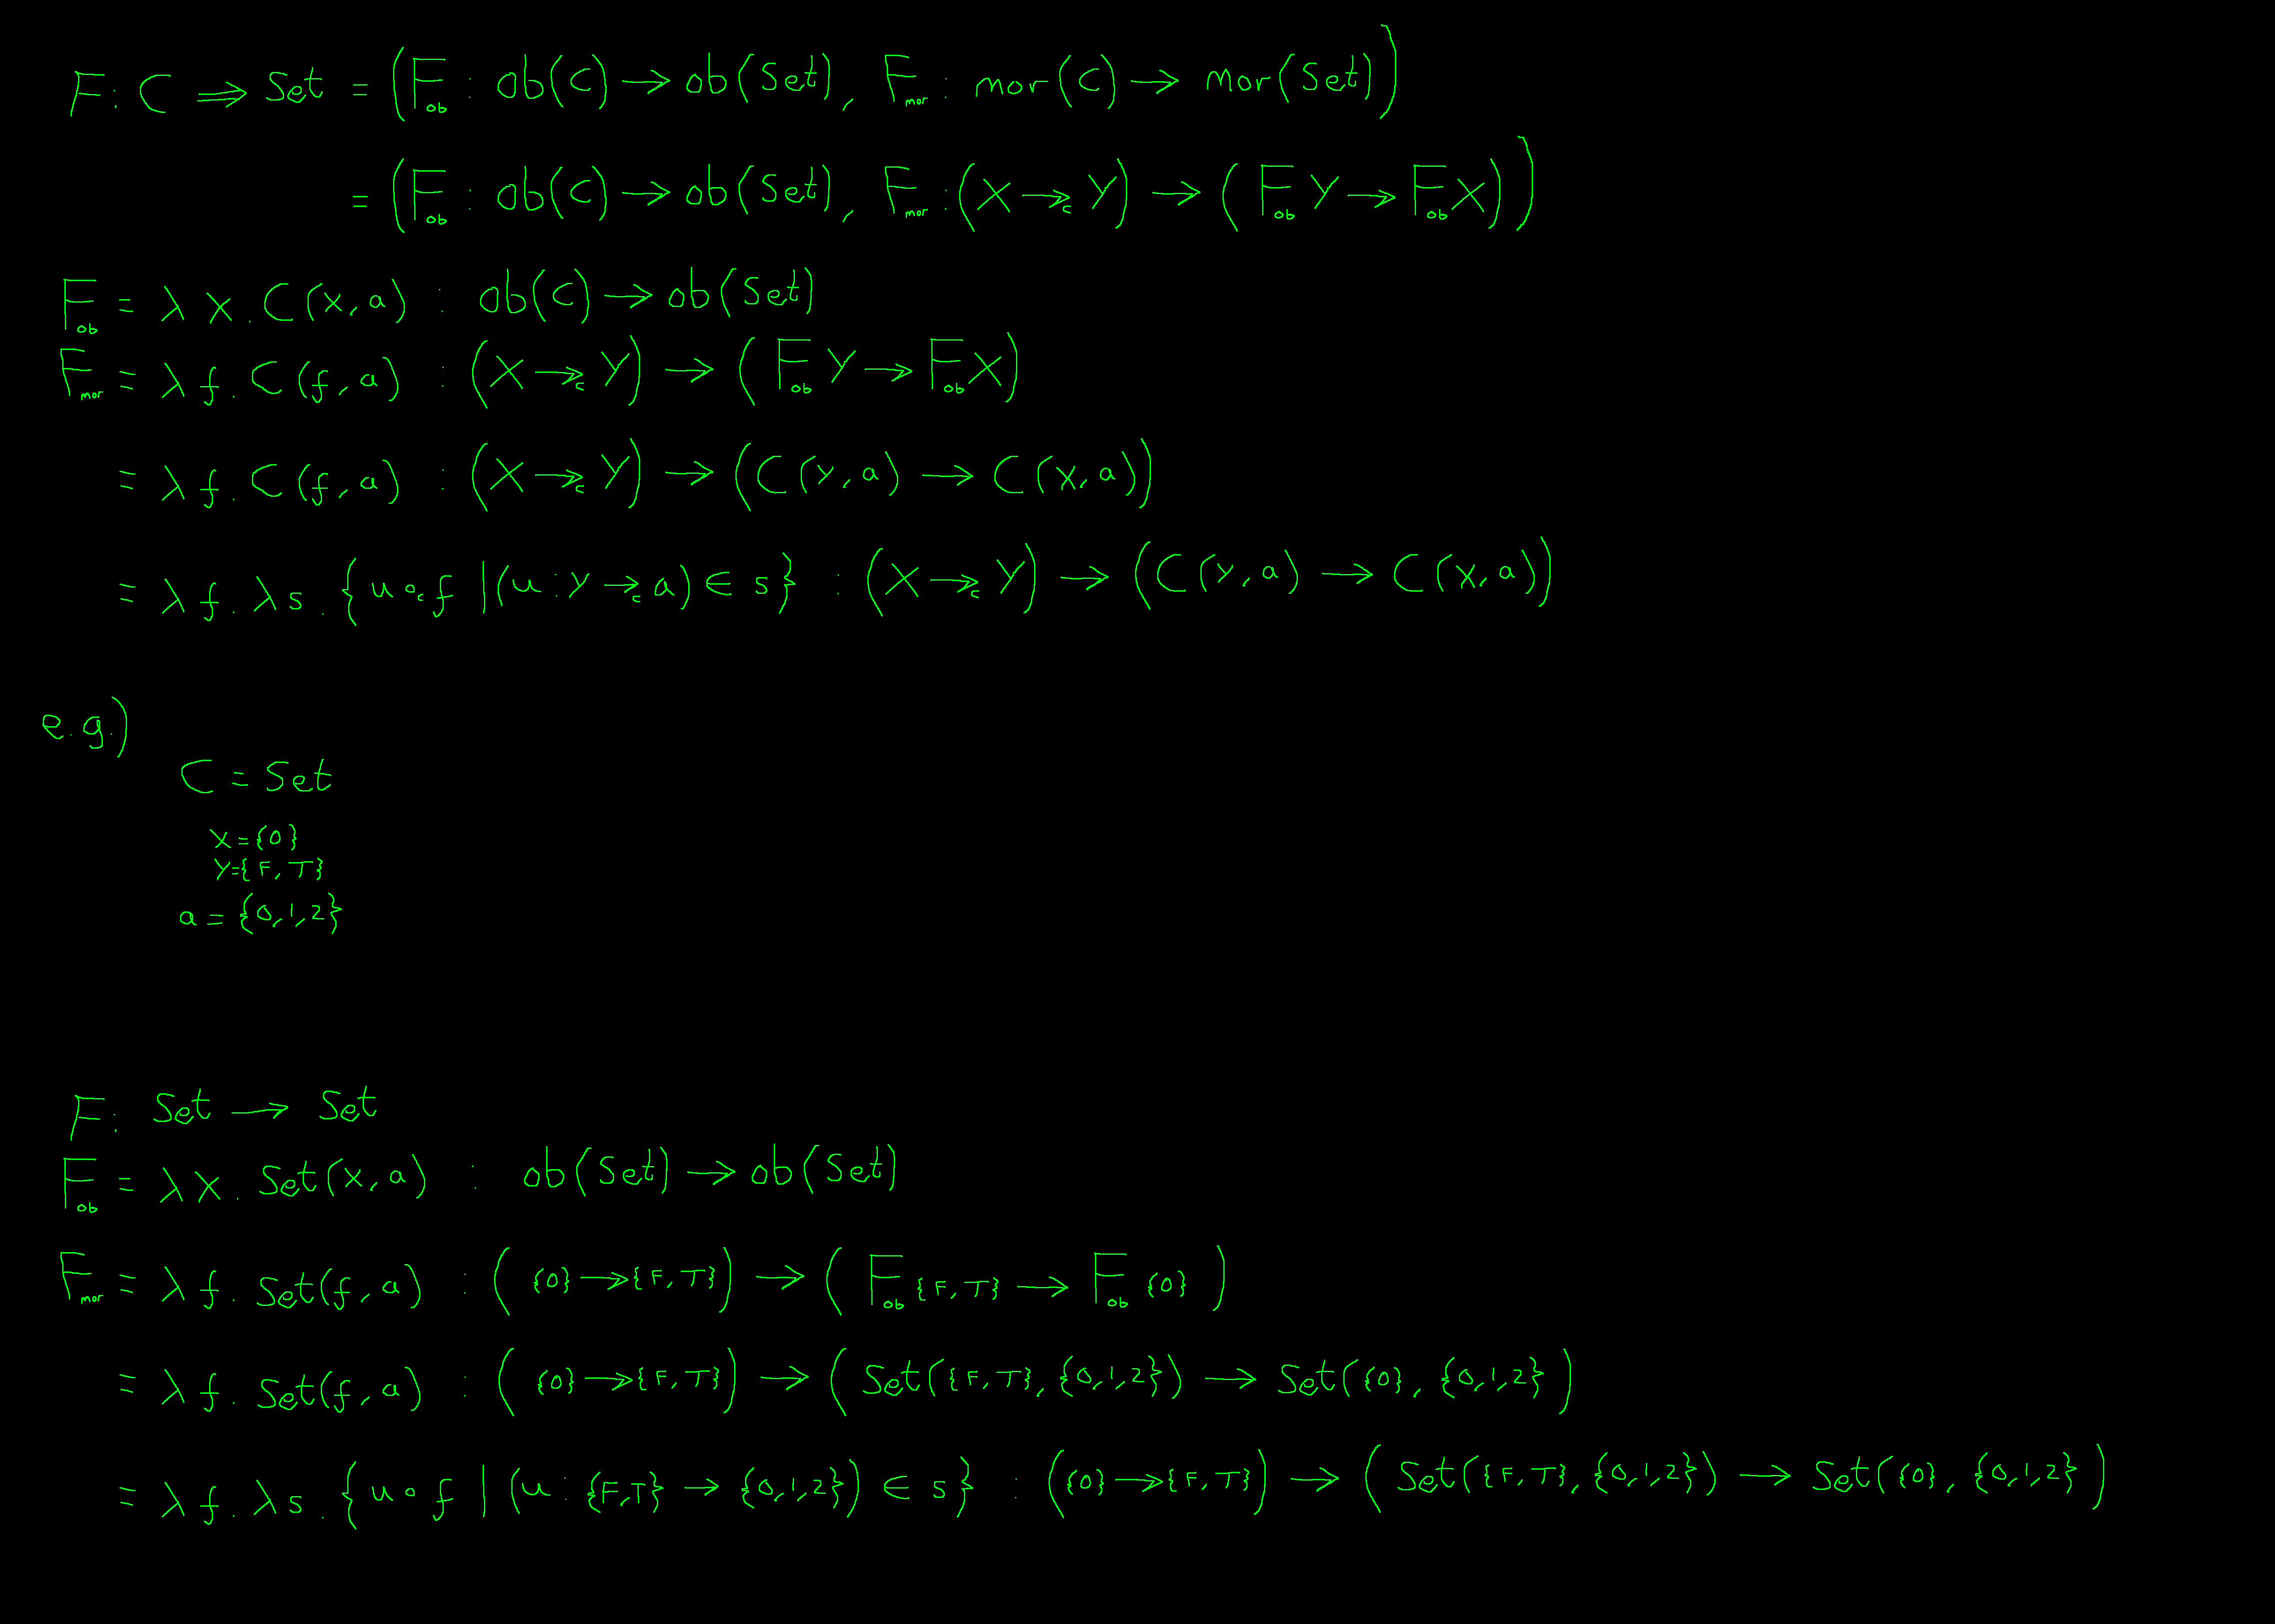 F: C ⟹ Set = (F_ob : ob(C) → ob(Set), F_mor : mor(C) → mor(Set))
= (F_ob : ob(C) → ob(Set), F_mor : (X →_C Y) → (F_ob Y → F_ob X))
F_ob = λx. C(x, a) : ob(C) → ob(Set)
F_mor = λf. C(f, a) : (X →_C Y) → (F_ob Y → F_ob X)
= λf. C(f, a) : (X →_C Y) → (C(Y, a) → C(X, a))
= λf. λs. {u ∘_C f | (u : Y →_C a) ∈ s} : (X →_C Y) → (C(Y, a) → C(X, a))
e.g.)
C = Set
X = {0}
Y = {F, T}
a = {0, 1, 2}
F: Set → Set
F_ob = λx. Set(x, a) : ob(Set) → ob(Set)
F_mor = λf. Set(f, a) : ({0} → {F, T}) → (F_ob {F, T} → F_ob {0})
= λf. Set(f, a) : ({0} → {F, T}) → (Set({F, T}, {0, 1, 2}) → Set({0}, {0, 1, 2})
= λf. λs. {u ∘ f | (u : {F, T} → {0, 1, 2}) ∈ s} : ({0} → {F, T}) → (Set({F, T}, {0, 1, 2}) → Set({0}, {0, 1, 2})